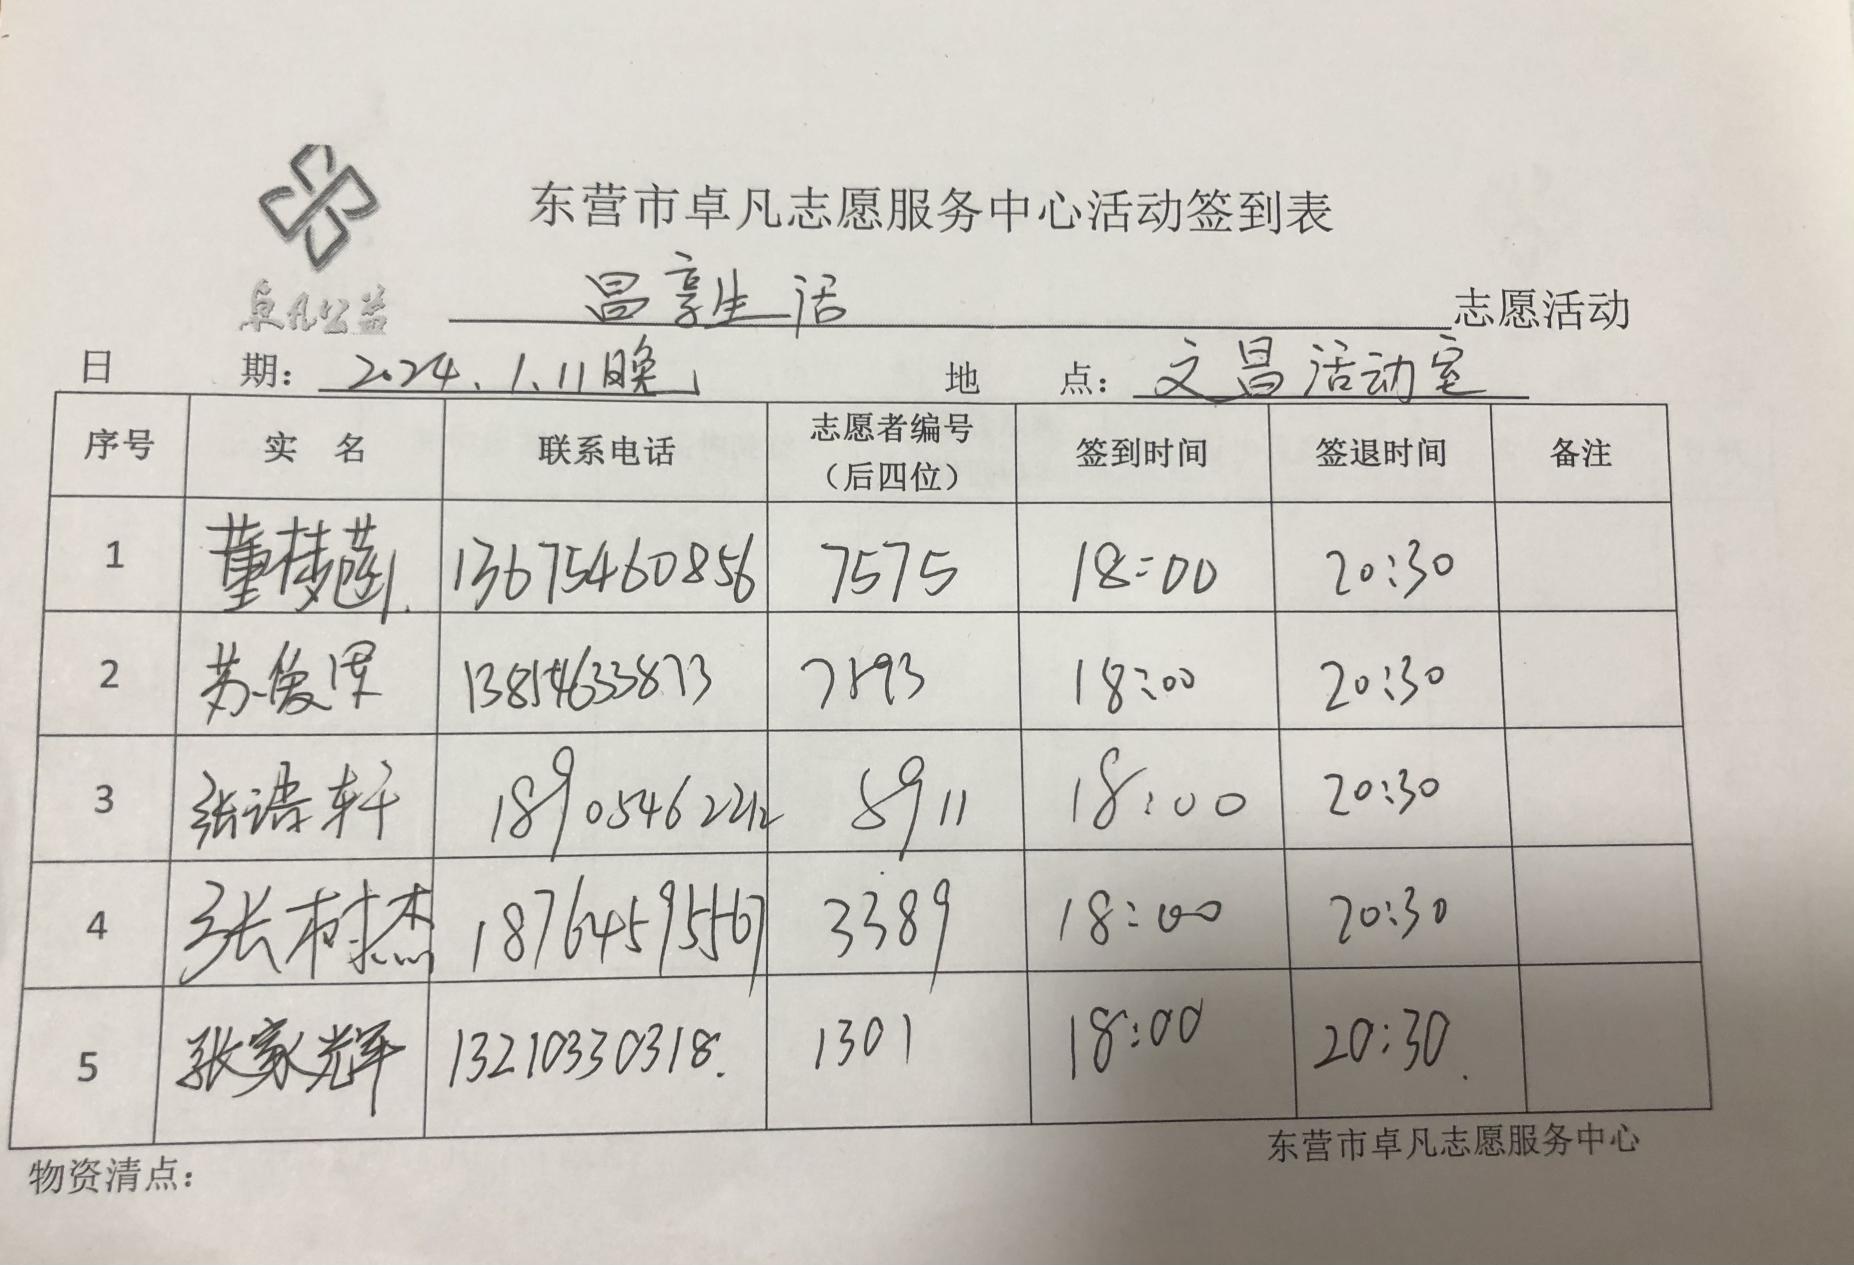 东营市卓凡志愿服务中心活动签到表
卓凡公益
昌享生活 志愿活动
日 期：2024.1.11晚 地 点：文昌活动室
序号 实 名 联系电话 志愿者编号（后四位） 签到时间 签退时间 备注
1 董梦菡 13675460856 7575 18:00 20:30
2 苏俊 7193 18:00 20:30
3 张轩 18905462212 8911 18:00 20:30
4 张树杰 18764595567 3389 18:00 20:30
5 张家辉 13210330318. 1301 18:00 20:30.
东营市卓凡志愿服务中心
物资清点：